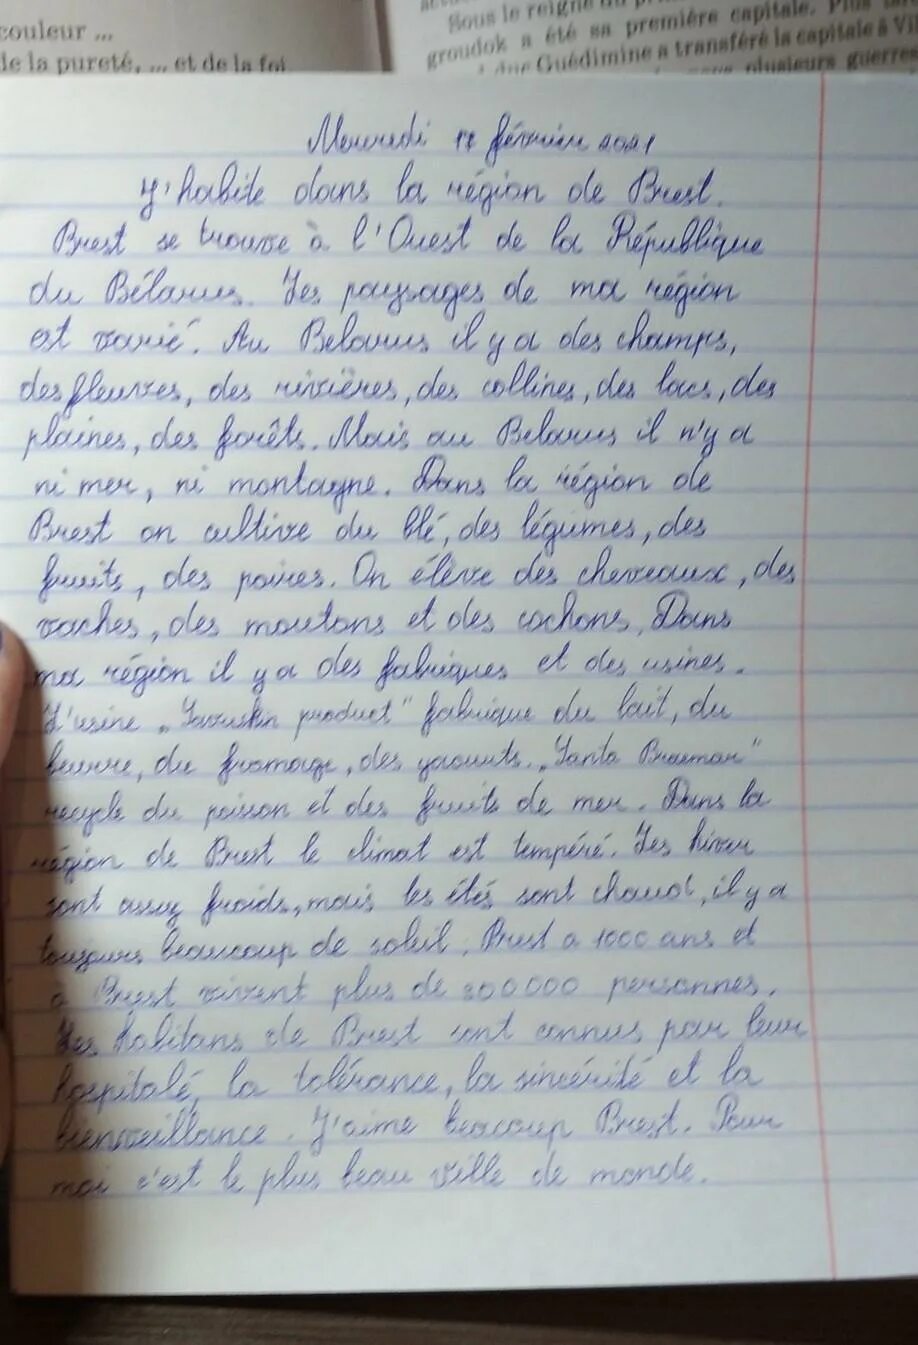 couleur ...
de la pureté, ... et de la foi
Sous le reigne du
groudok a été sa première capitale. Plus
duc Guédimine a transféré la capitale à Vil
plusieurs guerres
Mercredi 17 février 2021
J'habite dans la région de Brest.
Brest se trouve à l'Ouest de la République
du Bélarus. Les paysages de ma région
est varié. Au Belarus il y a des champs,
des fleuves, des rivières, des collines, des lacs, des
plaines, des forêts. Mais au Belarus il n'y a
ni mer, ni montagne. Dans la région de
Brest on cultive du blé, des légumes, des
fruits, des poires. On élève des cheveaux, des
vaches, des moutons et des cochons. Dans
ma région il y a des fabriques et des usines.
L'usine „Savushkin product" fabrique du lait, du
beurre, du fromage, des yaourts. „Santa Bremor"
recycle du poisson et des fruits de mer. Dans la
région de Brest le climat est tempéré. Les hiver
sont assez froids, mais les étés sont chaud, il y a
toujours beaucoup de soleil. Brest a 1000 ans et
a Brest vivent plus de 300000 personnes.
Les habitans de Brest sont connus pour leur
hospitalé, la tolérance, la sincérité et la
bienveillance. J'aime beacoup Brest. Pour
moi c'est le plus beau ville de monde.